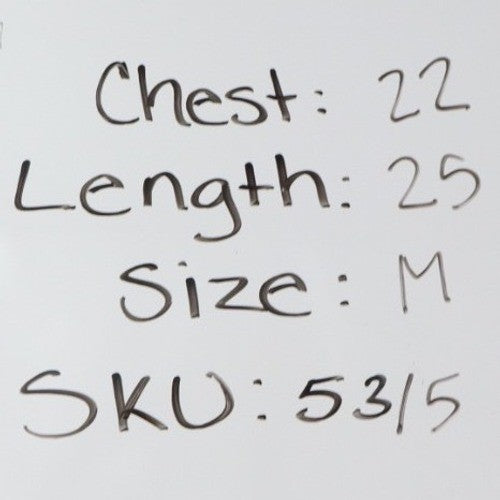 Chest: 22
Length: 25
Size: M
SKU: 53/5